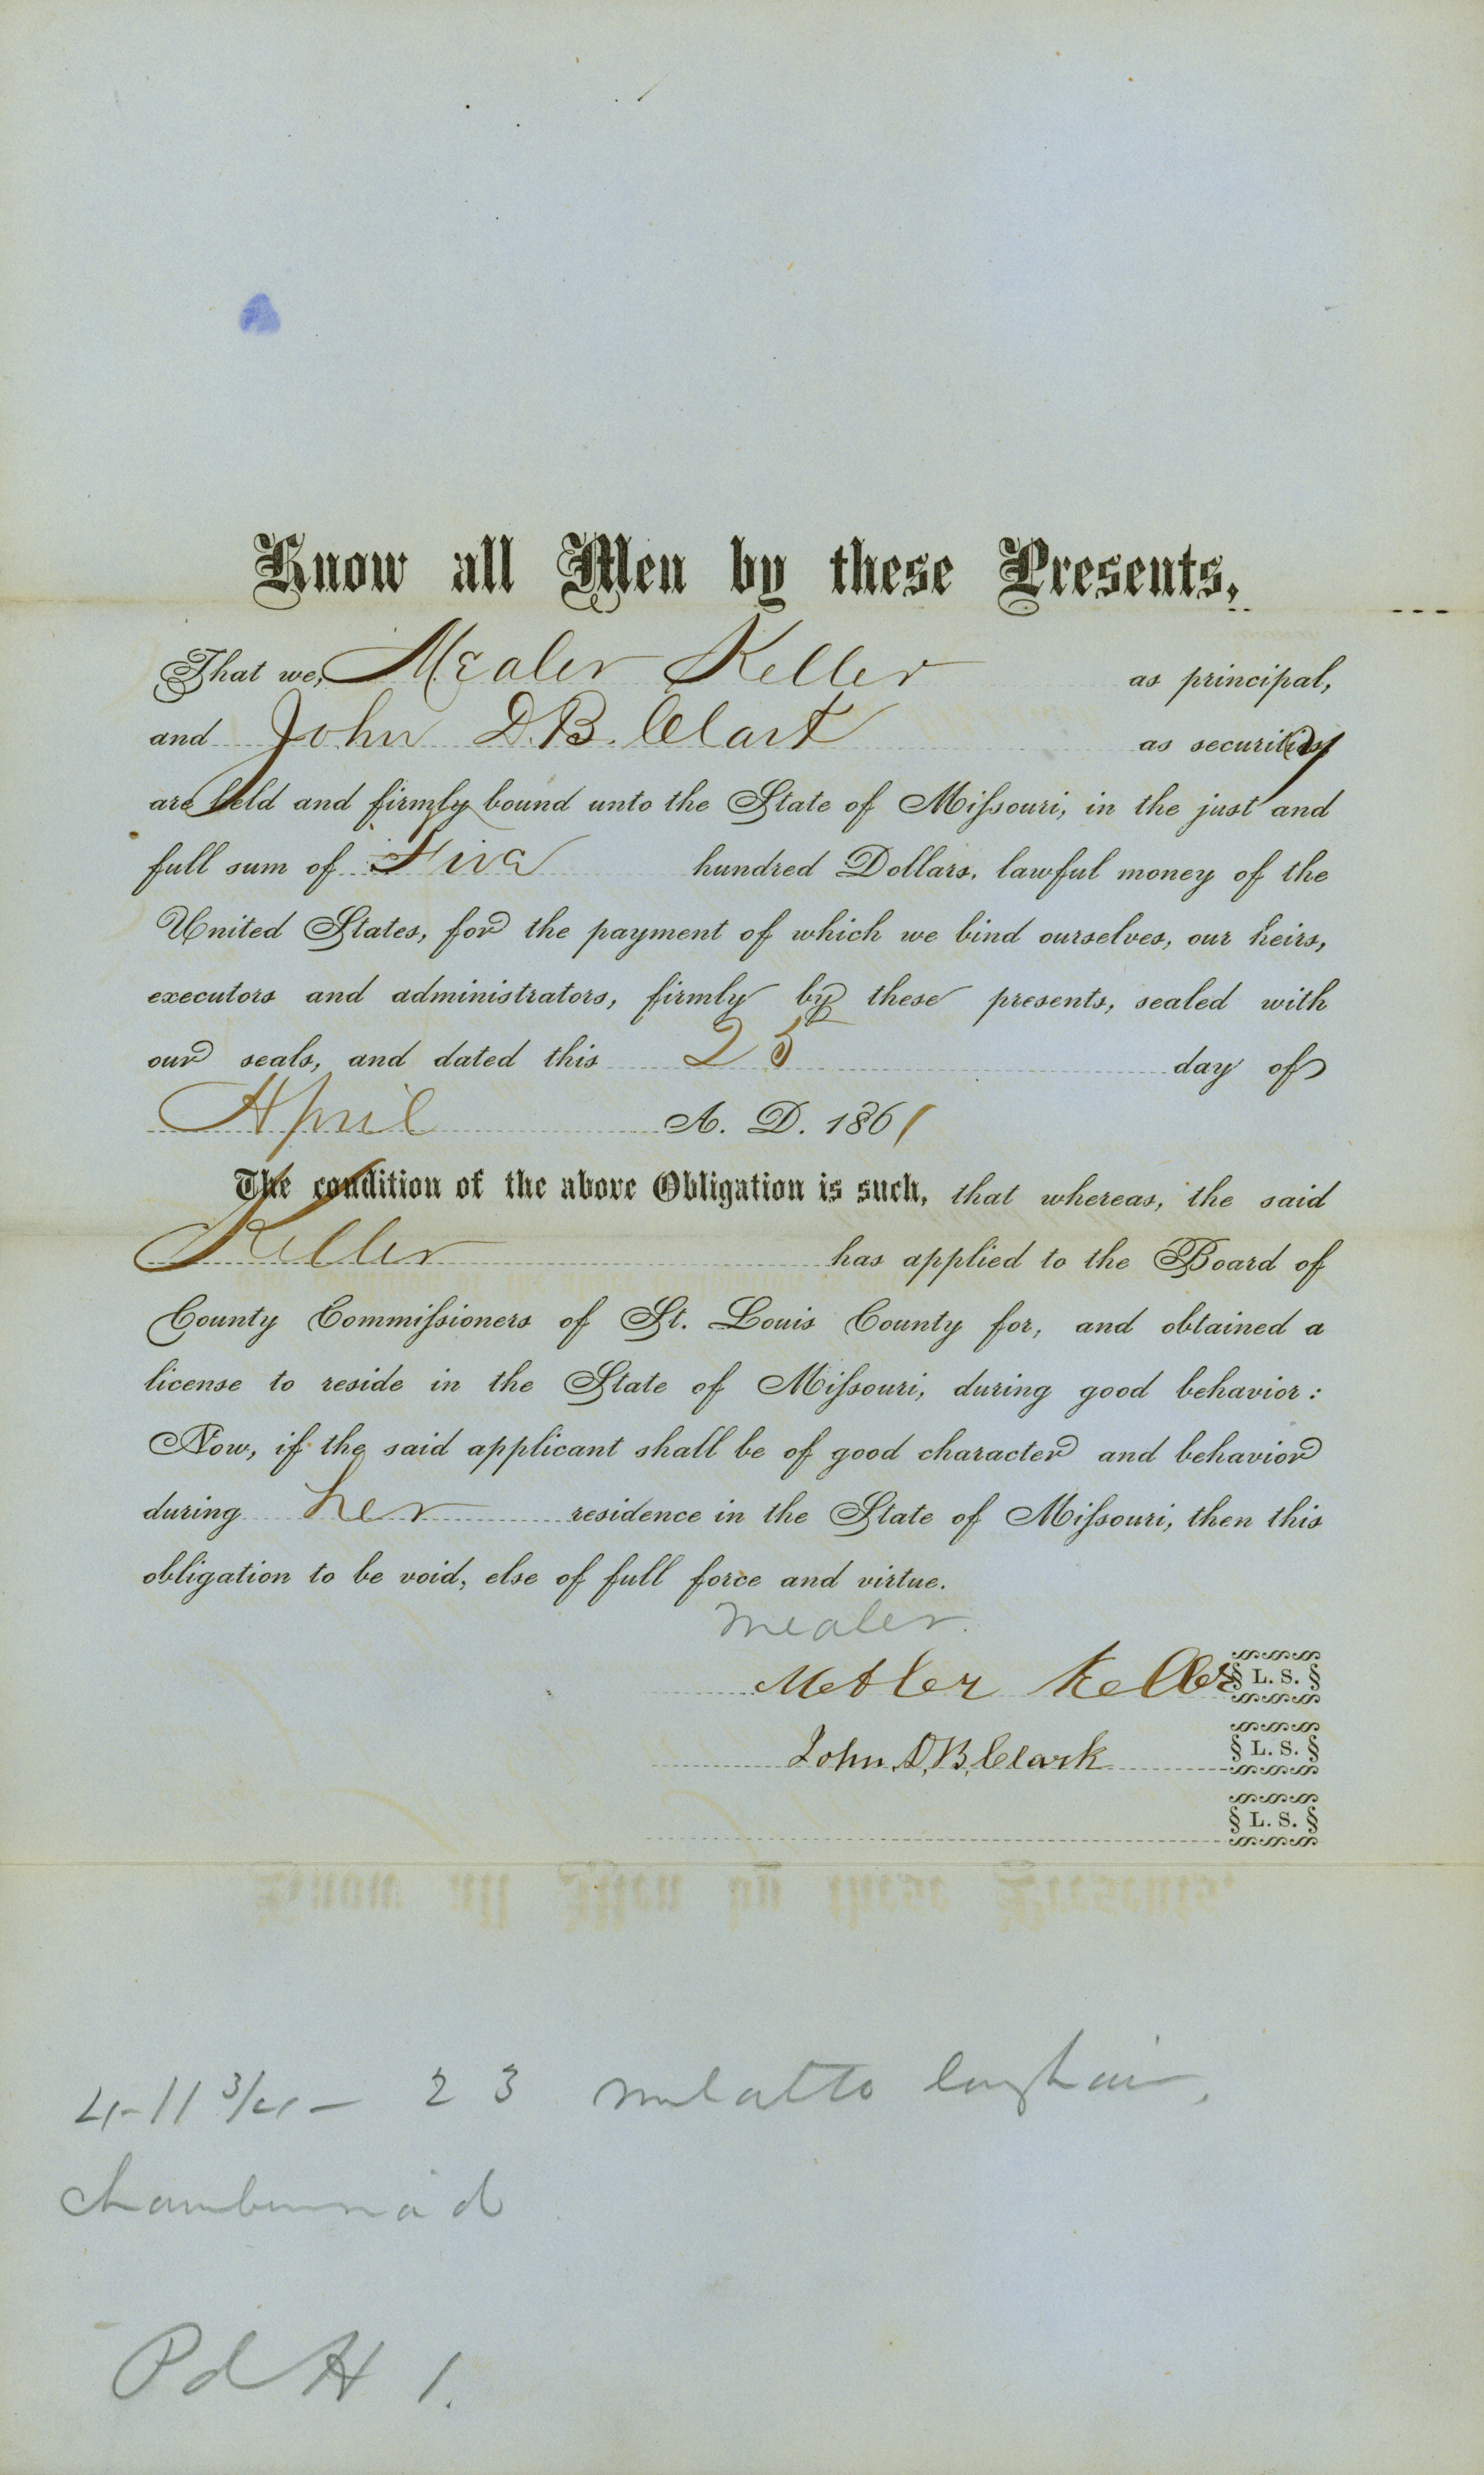 Know all Men by these Presents,
That we, Mealer Keller as principal,
and John D. B. Clark as security
are held and firmly bound unto the State of Missouri, in the just and
full sum of Five hundred Dollars, lawful money of the
United States, for the payment of which we bind ourselves, our heirs,
executors and administrators, firmly by these presents, sealed with
our seals, and dated this 25 day of
April A. D. 1861
The condition of the above Obligation is such, that whereas, the said
Keller has applied to the Board of
County Commissioners of St. Louis County for, and obtained a
license to reside in the State of Missouri, during good behavior:
Now, if the said applicant shall be of good character and behavior
during her residence in the State of Missouri, then this
obligation to be void, else of full force and virtue.
Mealer.
Metler Keller L. S.
John D. B. Clark L. S.
L. S.
4-11 3/4 - 23 mulatto long hair,
chambermaid
Pd H 1.